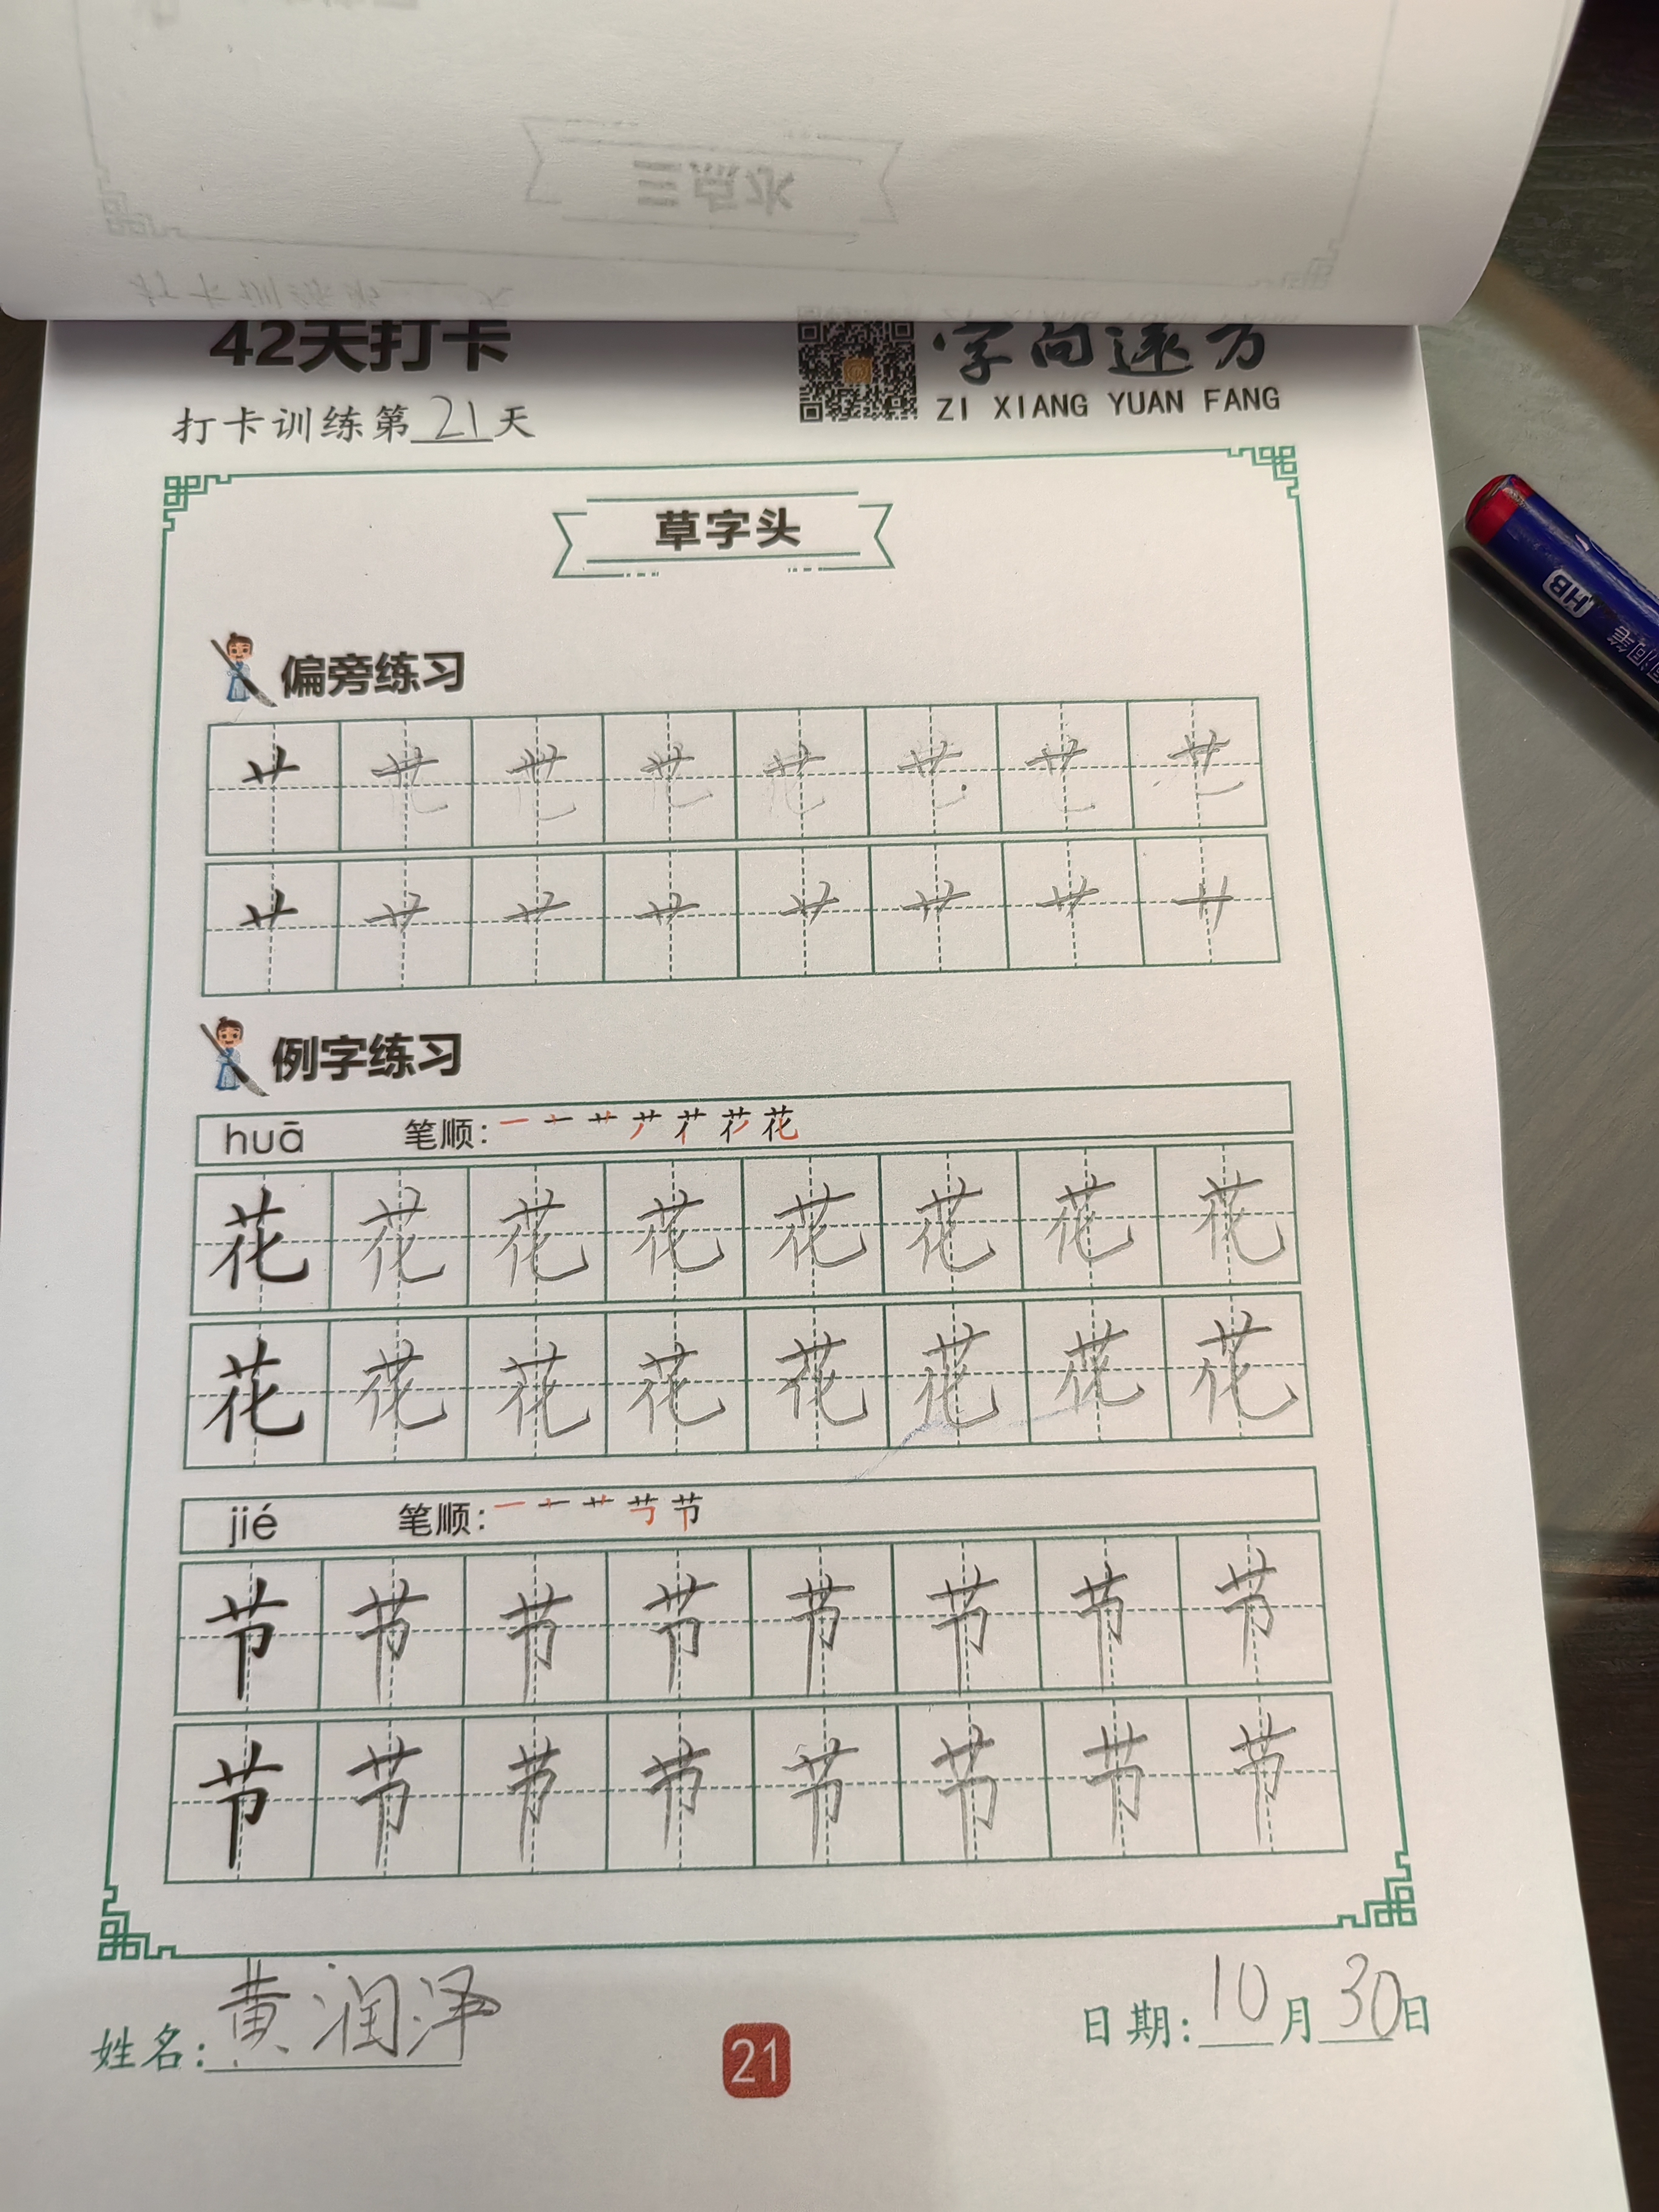 三点水
打卡训练第___天
42天打卡
字向远方
ZI XIANG YUAN FANG
打卡训练第21天
草字头
HB
偏旁练习
艹 艹 艹 艹 艹 艹 艹 艹
艹 艹 艹 艹 艹 艹 艹 艹
例字练习
huā 笔顺:
花 花 花 花 花 花 花 花
花 花 花 花 花 花 花 花
jié 笔顺:
节 节 节 节 节 节 节 节
节 节 节 节 节 节 节 节
姓名:黄润泽
21
日期:10月30日